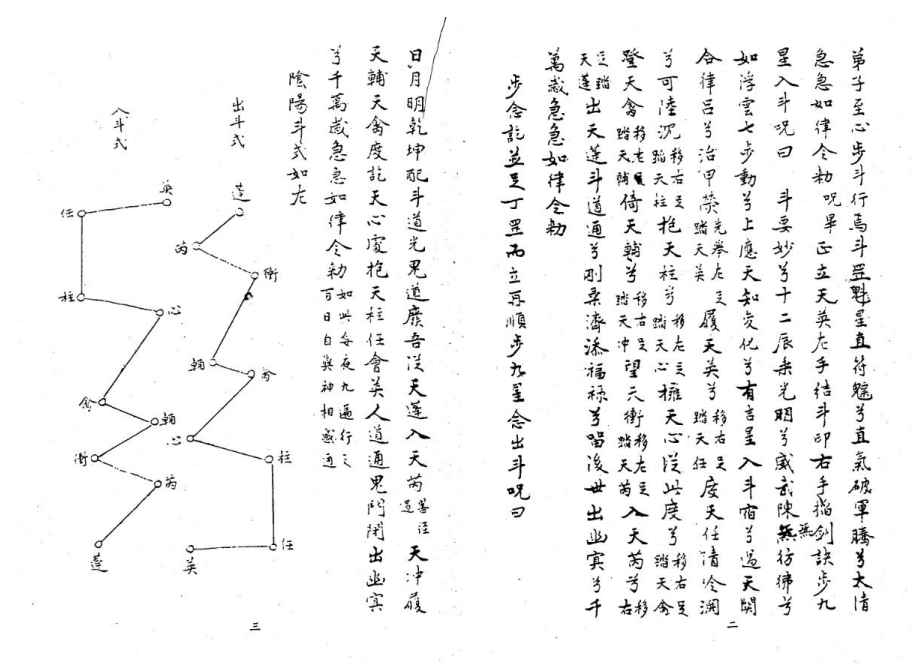 弟子至心步斗行焉斗罡魁星直符魒兮直氣破軍騰兮太清
急急如律令勅 呪畢正立天英左手结斗印右手掐剑訣步九
星入斗呪曰 斗要妙兮十二辰乘光明兮威武陳無彷彿兮
無
如浮雲七步動兮上應天知变化兮有吉星入斗宿兮過天關
合律吕兮治甲榮先举左足踏天英履天英兮移右足踏天任度天任清冷渊
兮可陸沉移右足踏天柱抱天柱兮移左足踏天心擁天心從此度兮移右足踏天禽
登天禽移左足踏天輔倚天輔兮移右足踏天冲望天衝移左足踏天芮入天芮兮移右
足踏天蓬出天蓬斗道通兮刚柔濟添福禄兮留後世出幽冥兮千
萬歲急急如律令勅
步念訖並足丁罡而立再順步九星念出斗呪曰
二
日月明乾坤配斗道光鬼道廢吾從天蓬入天芮天冲履
天輔天禽度訖天心度抱天柱任會英人道通鬼門閉出幽冥
兮千萬歲急急如律令勅如此每夜九遍行之百日自與神相感通
陰陽斗式如左
出斗式
蓬
芮
衝
輔
禽
心
柱
任
英
入斗式
英
任
柱
心
禽
輔
衝
芮
蓬
三